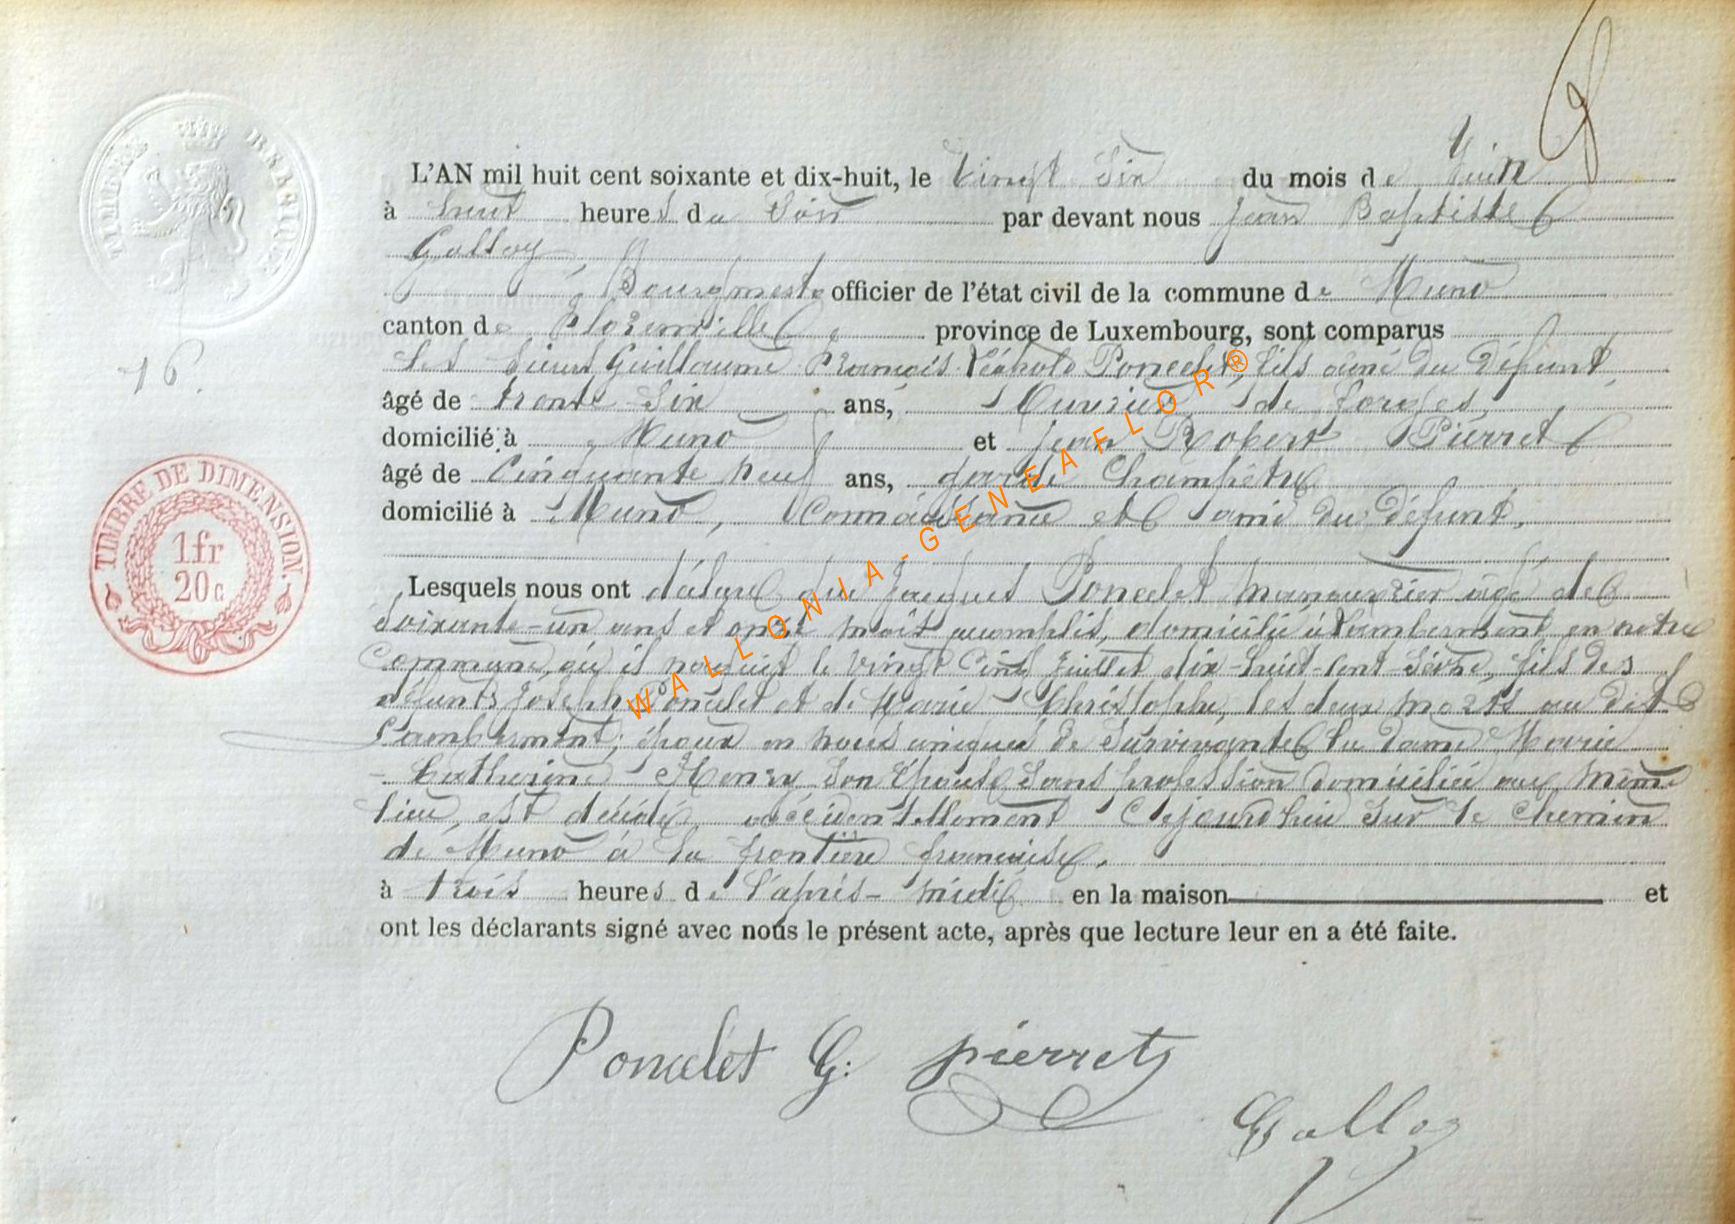 TIMBRE BELGIQUE
L'AN mil huit cent soixante et dix-huit, le Vingt Six du mois de Juin
à huit heures du Soir par devant nous Jean Baptiste
Galloy,
Bourgmestre officier de l'état civil de la commune de Muno
canton de Florenville, province de Luxembourg, sont comparus
16.
les sieurs Guillaume François Léopold Poncelet, fils ainé du Défunt,
âgé de trente Six ans, Ouvrier de forges,
domicilié à Muno et Jean Robert Pierret
âgé de Cinquante neuf ans, garde Champêtre
domicilié à Muno, Connaissance et ami du Défunt,
TIMBRE DE DIMENSION.
1fr
20c
Lesquels nous ont déclaré que Jacques Poncelet manouvrier âgé de
soixante-un ans et onze mois accomplis, domicilié à Lambermont en notre
commune, où il naquit le vingt Cinq Juillet dix-huit-cent-seize, fils des
défunts Joseph Poncelet et de Marie Christophe, les deux morts au dit
Lambermont; époux en noces uniques de Survivante la dame Marie
Catherine Henry son épouse sans profession domiciliée au même
lieu, est décédé accidentellement Cejourdhui sur le chemin
de Muno à la frontière française,
à trois heures de l'après-midi en la maison et
ont les déclarants signé avec nous le présent acte, après que lecture leur en a été faite.
Poncelet G: pierret
Galloy
WALLONIA-GENEAFLOR®